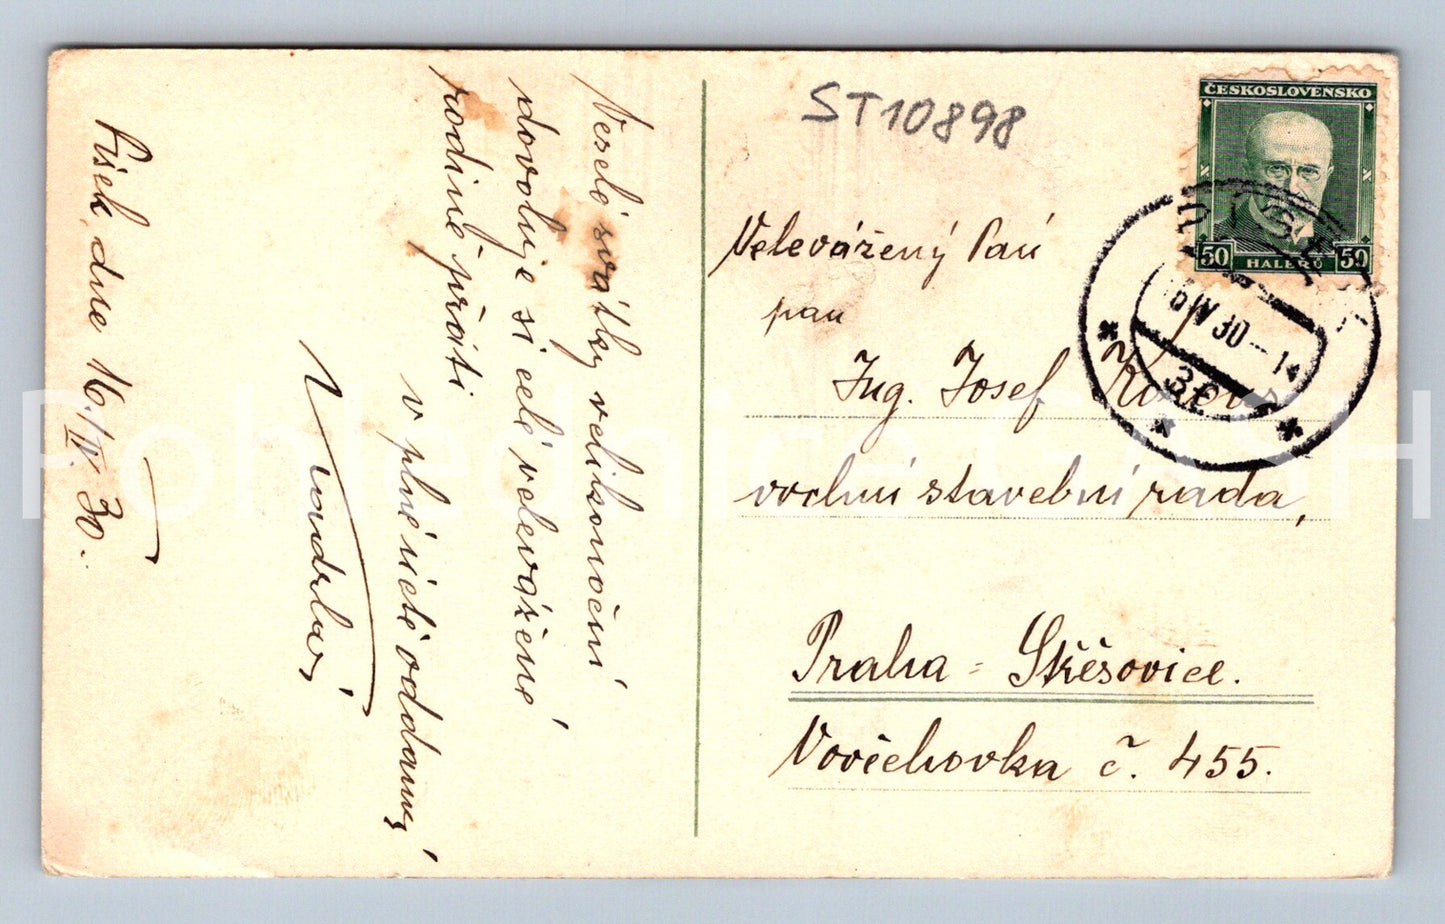 Veselé svátky velikonoční
dovoluje si celé velevážené
rodině přáti
v plné úctě oddaný
Písek, dne 16./IV. 30.
ST10898
ČESKOSLOVENSKO
50 HALÉŘŮ 50
16 IV 30
Velevážený Pan
pan
Ing. Josef
vrchní stavební rada,
Praha - Střešovice.
Vořechovka č. 455.